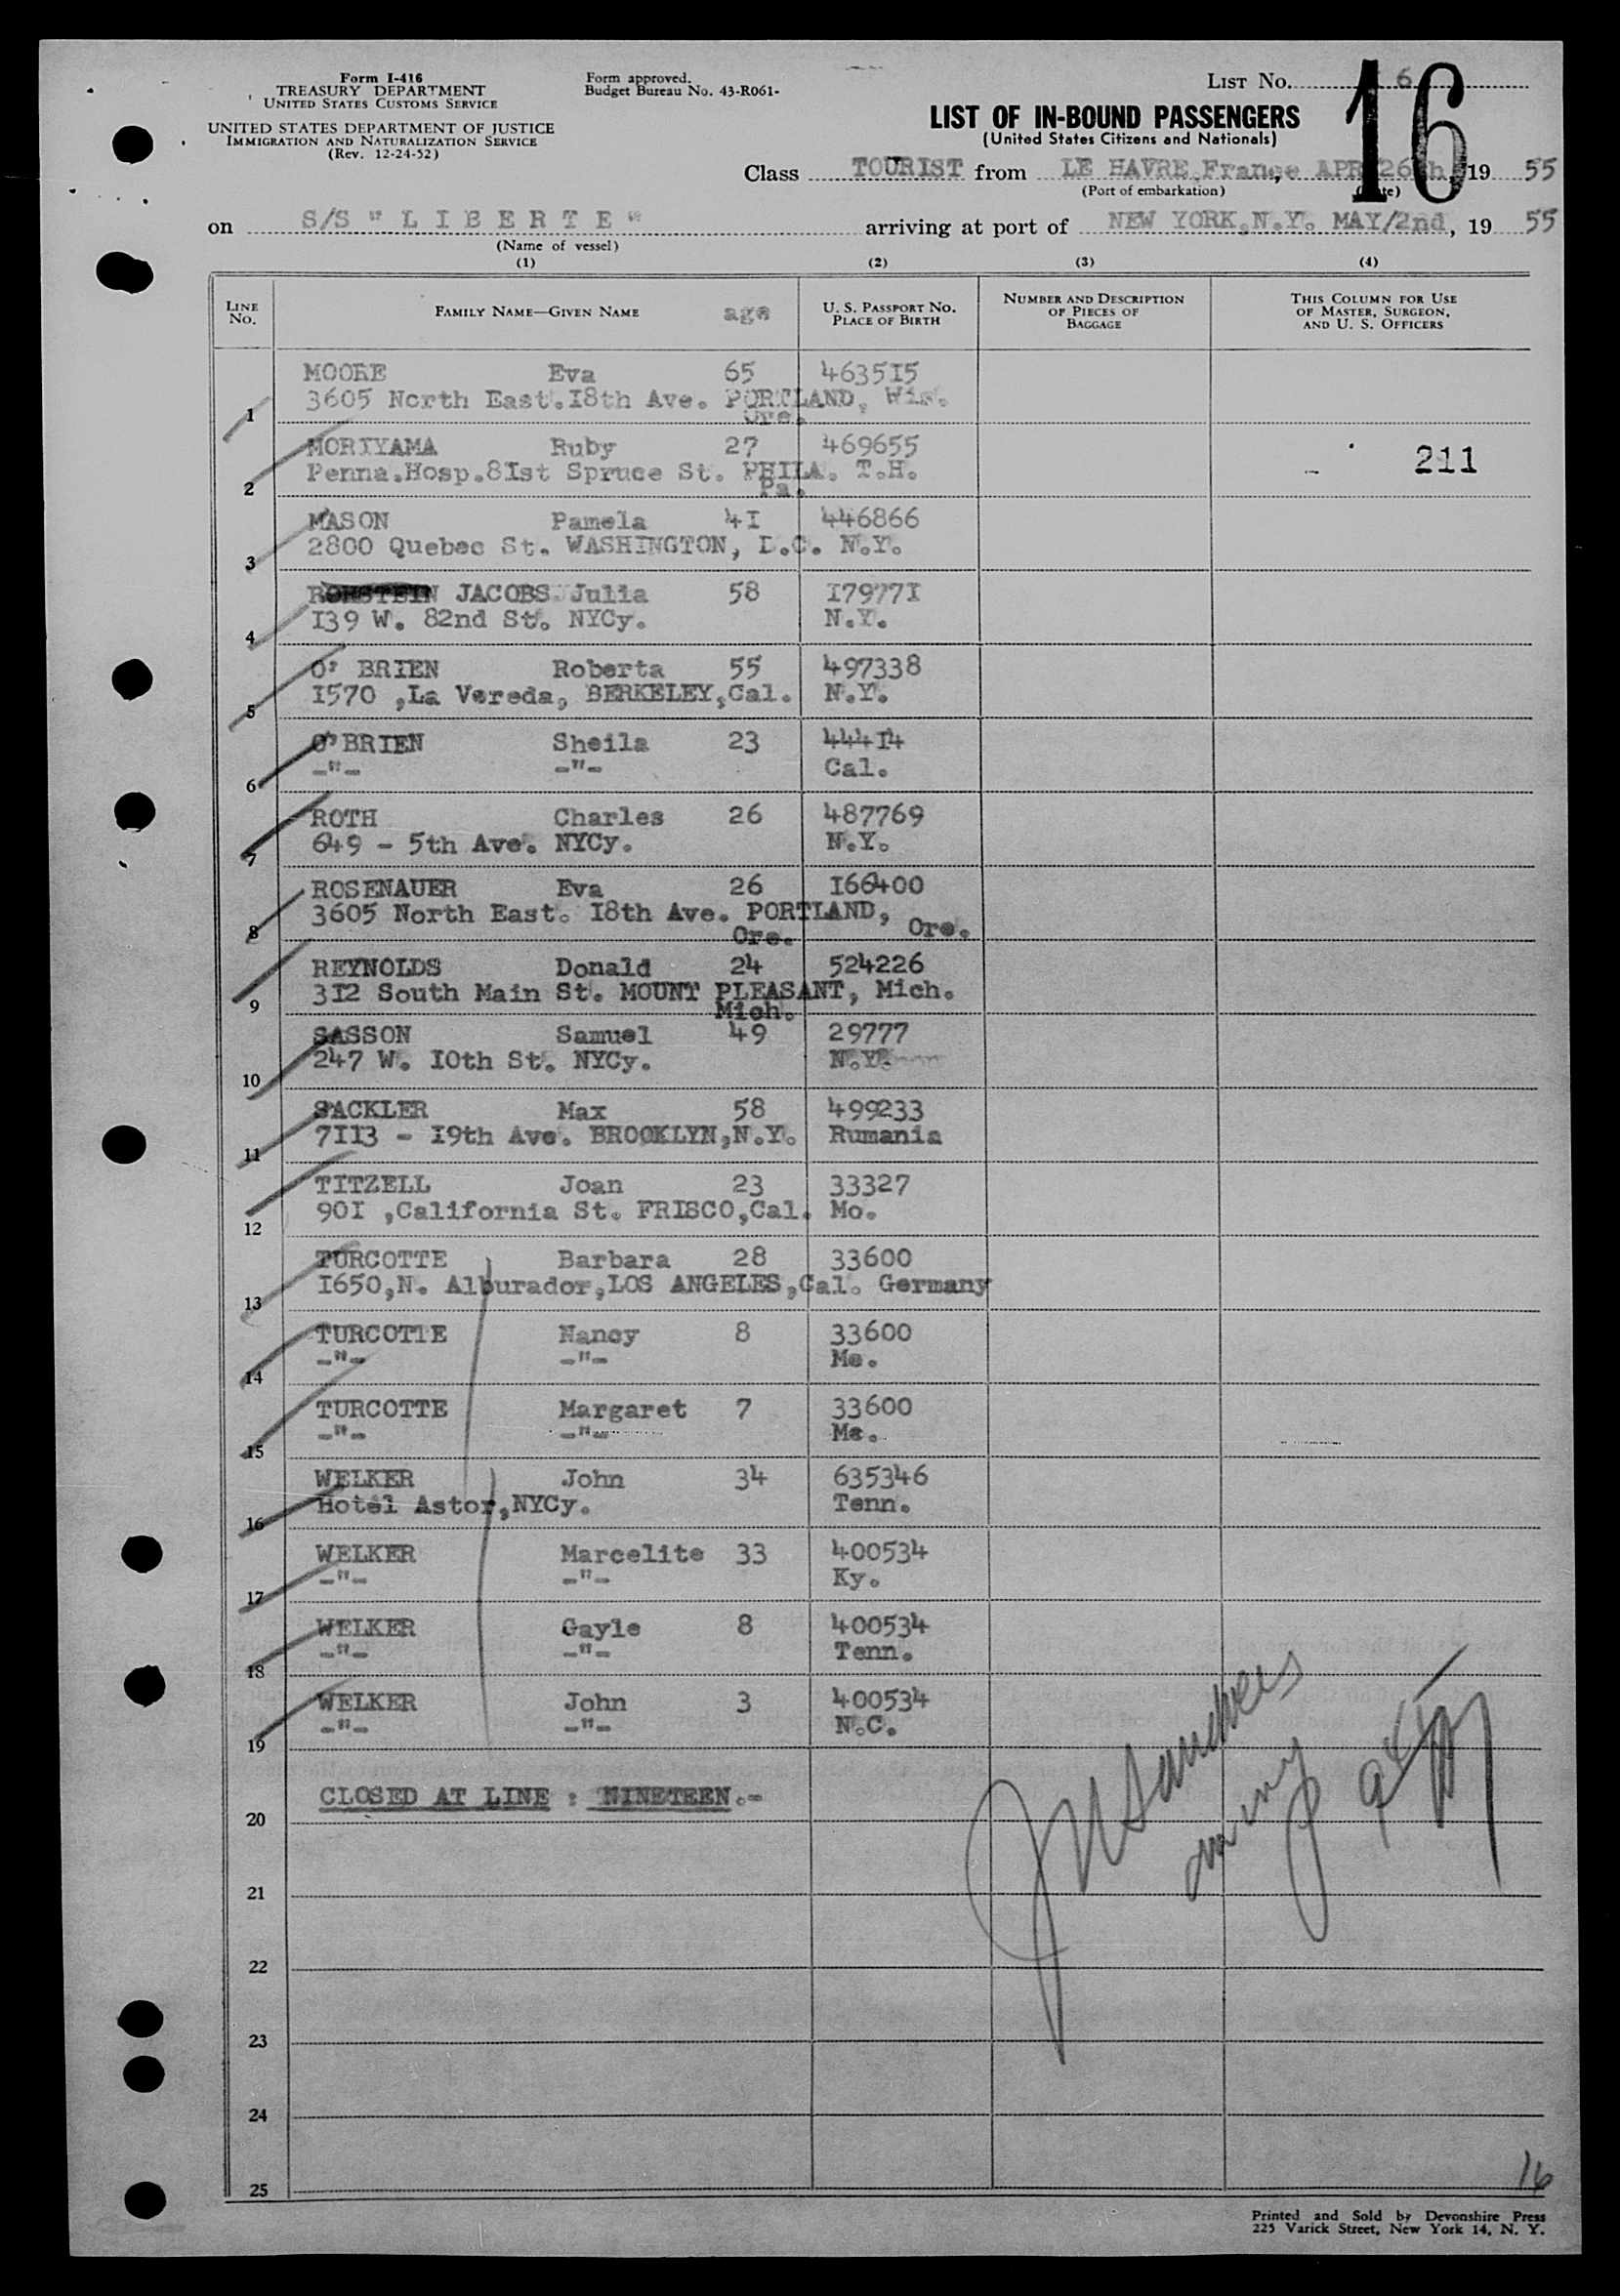 Form I-416
TREASURY DEPARTMENT
UNITED STATES CUSTOMS SERVICE
UNITED STATES DEPARTMENT OF JUSTICE
IMMIGRATION AND NATURALIZATION SERVICE
(Rev. 12-24-52)
Form approved.
Budget Bureau No. 43-R061-
LIST No. 6
16
LIST OF IN-BOUND PASSENGERS
(United States Citizens and Nationals)
Class TOURIST from LE HAVRE,France, APR/26th, 19 55
(Port of embarkation) (Date)
on S/S " L I B E R T E " arriving at port of NEW YORK,N.Y. MAY/2nd, 19 55
(Name of vessel)
(1) (2) (3) (4)
LINE NO. FAMILY NAME—GIVEN NAME age U. S. PASSPORT NO. PLACE OF BIRTH NUMBER AND DESCRIPTION OF PIECES OF BAGGAGE THIS COLUMN FOR USE OF MASTER, SURGEON, AND U. S. OFFICERS
MOORE Eva 65 463515
3605 North East.18th Ave. PORTLAND, Wis.
1 Ore.
MORIYAMA Ruby 27 469655
Penna.Hosp.81st Spruce St. PHILA. T.H. 211
2 Pa.
MASON Pamela 41 446866
2800 Quebec St. WASHINGTON, D.C. N.Y.
3
RORSTEIN JACOBS Julia 58 179771
139 W. 82nd St. NYCy. N.Y.
4
O' BRIEN Roberta 55 497338
1570 ,La Vereda, BERKELEY,Cal. N.Y.
5
O'BRIEN Sheila 23 44414
-"- -"- Cal.
6
ROTH Charles 26 487769
649 - 5th Ave. NYCy. N.Y.
7
ROSENAUER Eva 26 166400
3605 North East. 18th Ave. PORTLAND, Ore.
8 Ore.
REYNOLDS Donald 24 524226
312 South Main St. MOUNT PLEASANT, Mich.
9 Mich.
SASSON Samuel 49 29777
247 W. 10th St. NYCy. N.Y.
10
SACKLER Max 58 499233
7113 - 19th Ave. BROOKLYN,N.Y. Rumania
11
TITZELL Joan 23 33327
901 ,California St. FRISCO,Cal. Mo.
12
TURCOTTE Barbara 28 33600
1650,N. Alburador,LOS ANGELES,Cal. Germany
13
TURCOTTE Nancy 8 33600
-"- -"- Me.
14
TURCOTTE Margaret 7 33600
-"- -"- Ma.
15
WELKER John 34 635346
Hotel Astor,NYCy. Tenn.
16
WELKER Marcelite 33 400534
-"- -"- Ky.
17
WELKER Gayle 8 400534
-"- -"- Tenn.
18
WELKER John 3 400534
-"- -"- N.C.
19
CLOSED AT LINE : NINETEEN.-
20
21
22
23
24
25
16
Printed and Sold by Devonshire Press
225 Varick Street, New York 14, N. Y.